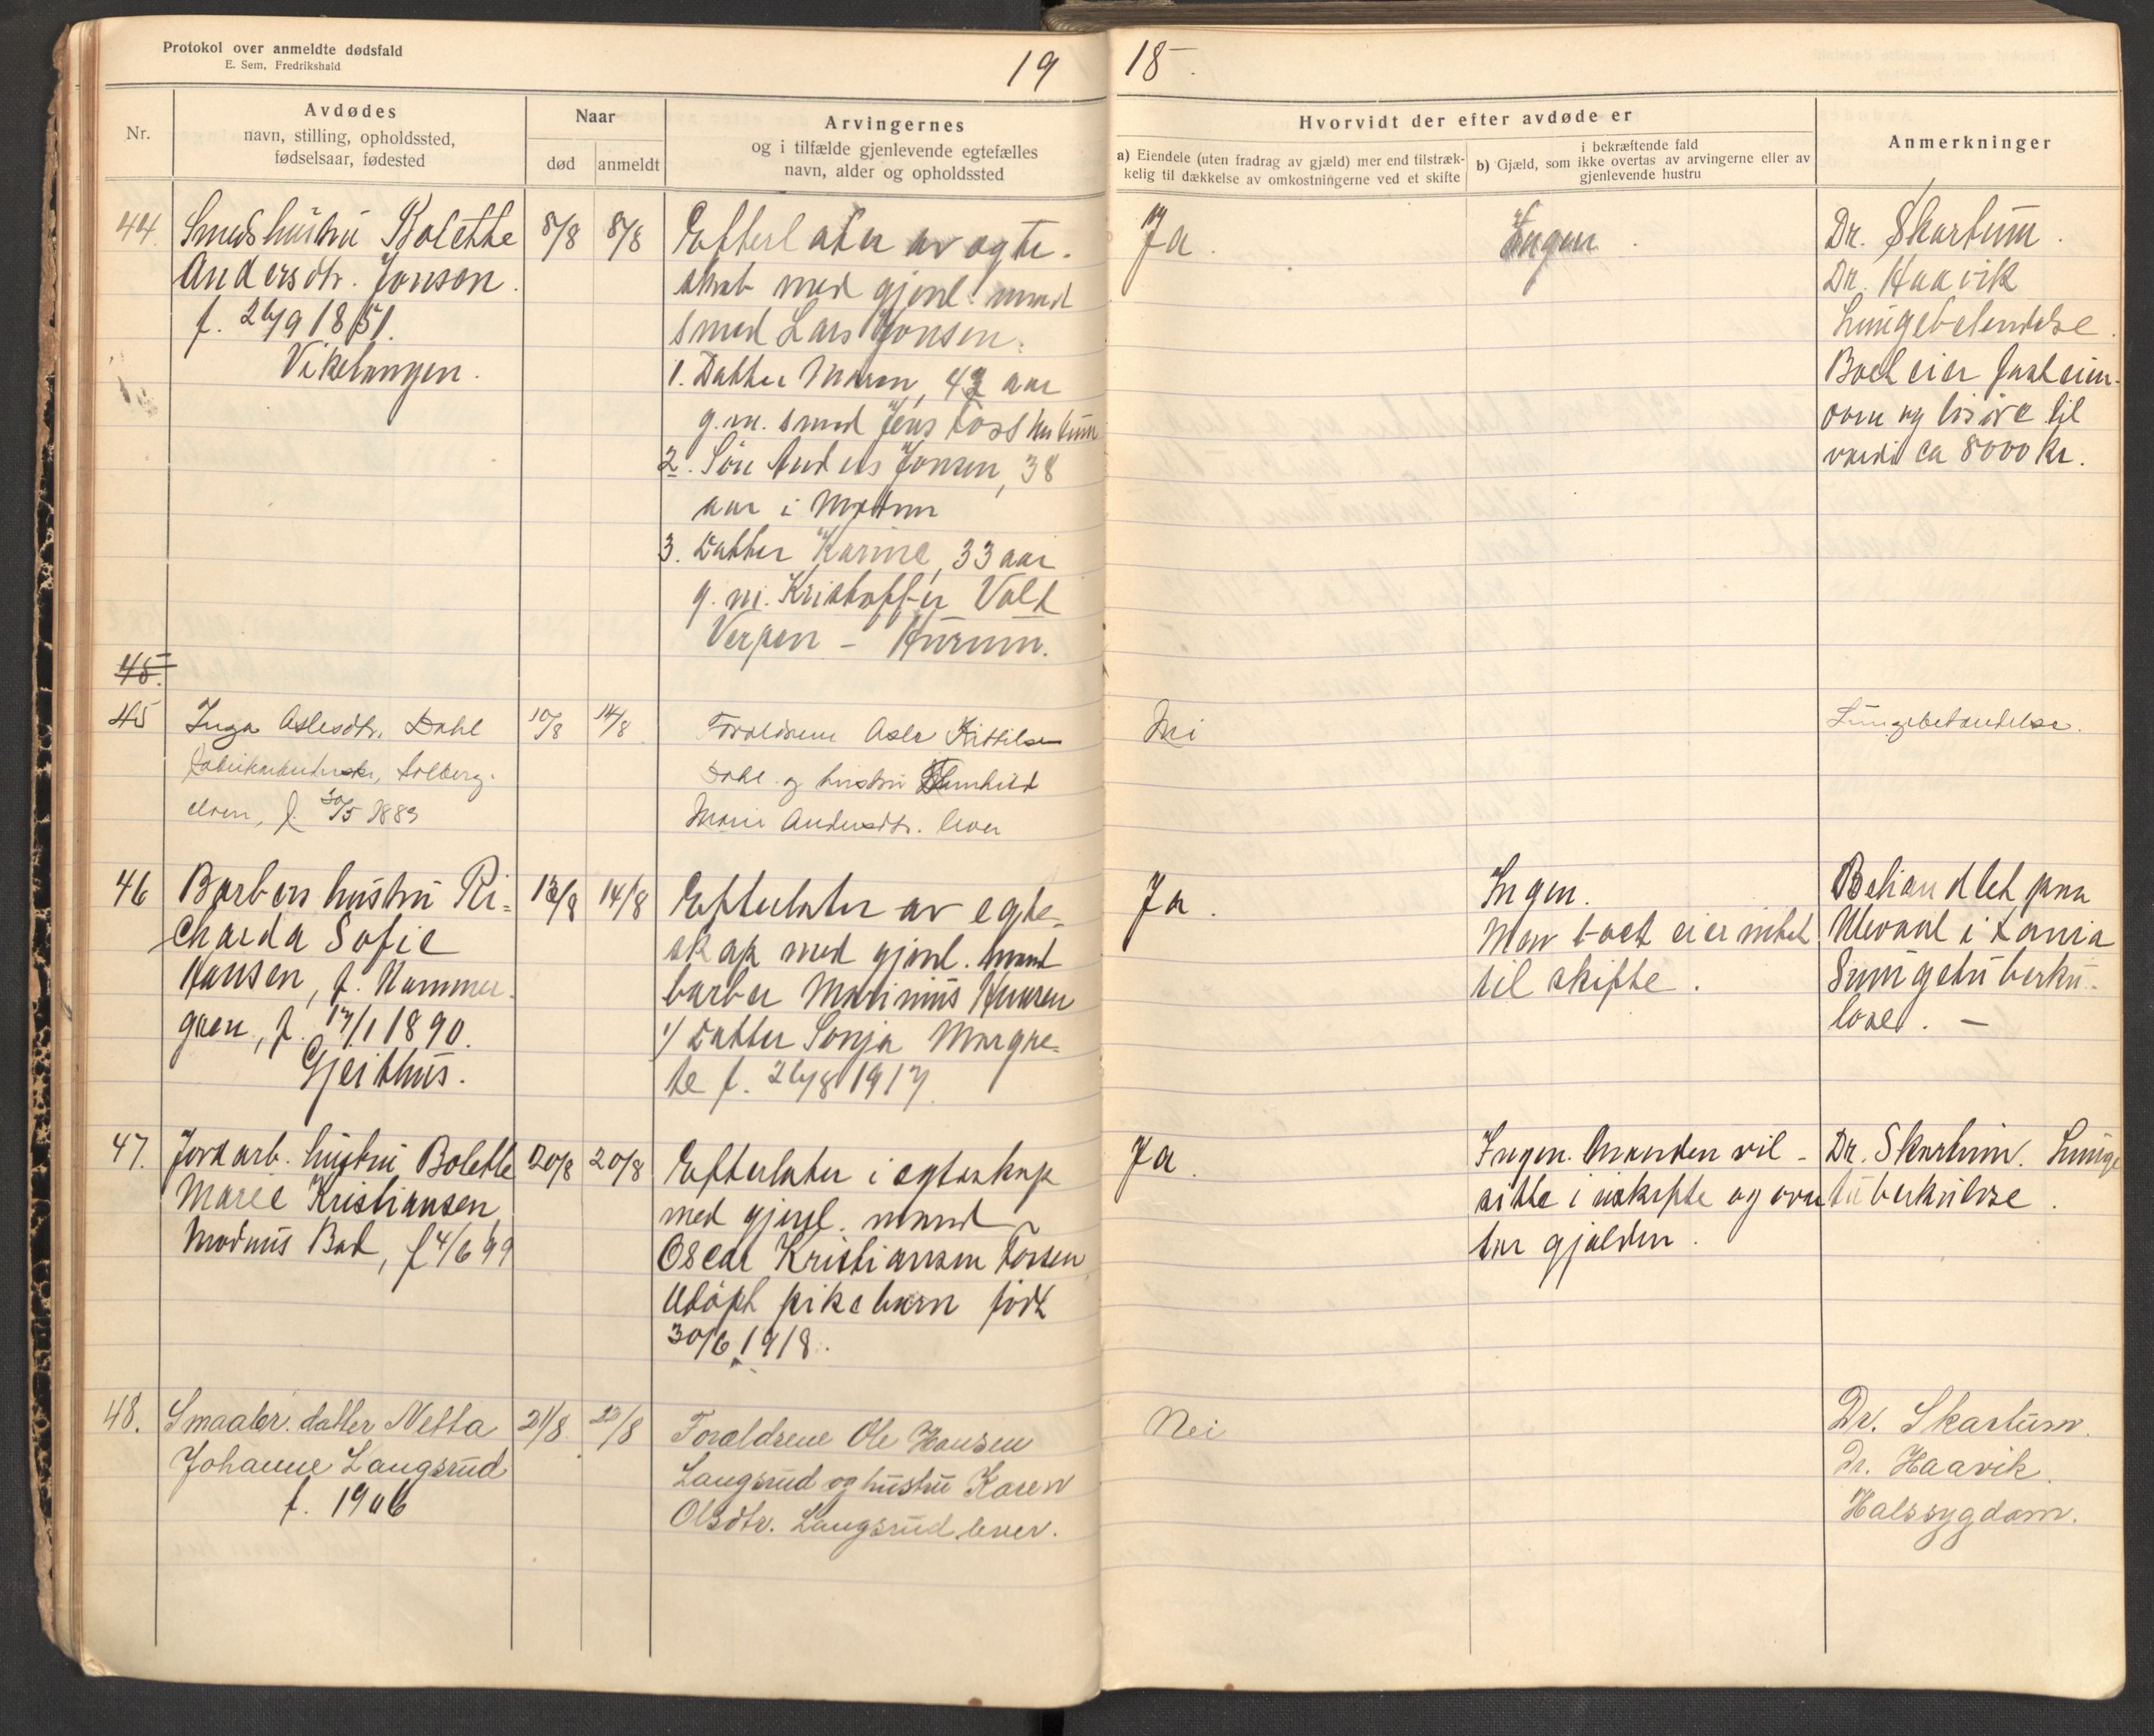 Protokol over anmeldte dødsfald
E. Sem, Fredrikshald
19
Nr.
Avdødes
navn, stilling, opholdssted,
fødselsaar, fødested
Naar
død
anmeldt
Arvingernes
og i tilfælde gjenlevende egtefælles
navn, alder og opholdssted
44.
Smeds hustru Bolette
Andersdtr. Jonsen.
f. 26/9 1851.
Vikelangen.
8/8
8/8
Efterlater av egte-
skab med gjenl. mand
smed Lars Jonsen.
1. Datter Maren, 42 aar
g.m. smed Jens Foss
2. Søn Anders Jonsen, 38
aar i Modum
3. Datter Karine, 33 aar
g.m. Kristoffer Vold
Verpen - Hurum.
45.
45
Inga Aslesdtr. Dahl
Fabrikarbeiderske, Solberg-
elven, f. 30/5 1883
10/8
14/8
Forældrene Asle Kittilsen
Dahl og hustru Gunhild
Marie Andersdtr. lever
46
Barbers hustru Ri-
charda Sofie
Hansen, f. Hammer-
gren, f. 17/1 1890.
Gjeithus.
13/8
14/8
Efterlater av egte-
skap med gjenl. mand
barber Marinius Hansen
1/ Datter Sonja Margre-
te f. 26/8 1917.
47.
Jordarb. hustru Bolette
Marie Kristiansen
Modums Bad, f 4/6 99
20/8
20/8
Efterlater i egteskap
med gjenl. mand
Oscar Kristiansen Forsen
Udøpt pikebarn født
30/6 1918.
48.
Smaabr. datter Netta
Johanne Langsrud
f. 1906
21/8
22/8
Forældrene Ole Hansen
Langsrud og hustru Karen
Olsdtr. Langsrud lever.
18.
Hvorvidt der efter avdøde er
a) Eiendele (uten fradrag av gjæld) mer end tilstræk-
kelig til dækkelse av omkostningerne ved et skifte
i bekræftende fald
b) Gjæld, som ikke overtas av arvingerne eller av
gjenlevende hustru
Anmerkninger
Ja.
Ingen.
Dr. Skartum.
Dr. Haavik
Lungebetendelse.
Boet eier fasteien-
dom og løsøre til
værdi ca 8000 kr.
Nei
Lungebetendelse.
Ja.
Ingen.
Men boet eier intet
til skifte.
Behandlet paa
Ulevaal i Kania
Lungetuberku-
lose. —
Ja.
Ingen. Manden vil
sitte i uskifte og over
tar gjælden.
Dr. Skartum. Lunge
tuberkulose.
Nei
Dr. Skartum.
Dr. Haavik.
Halssygdom.